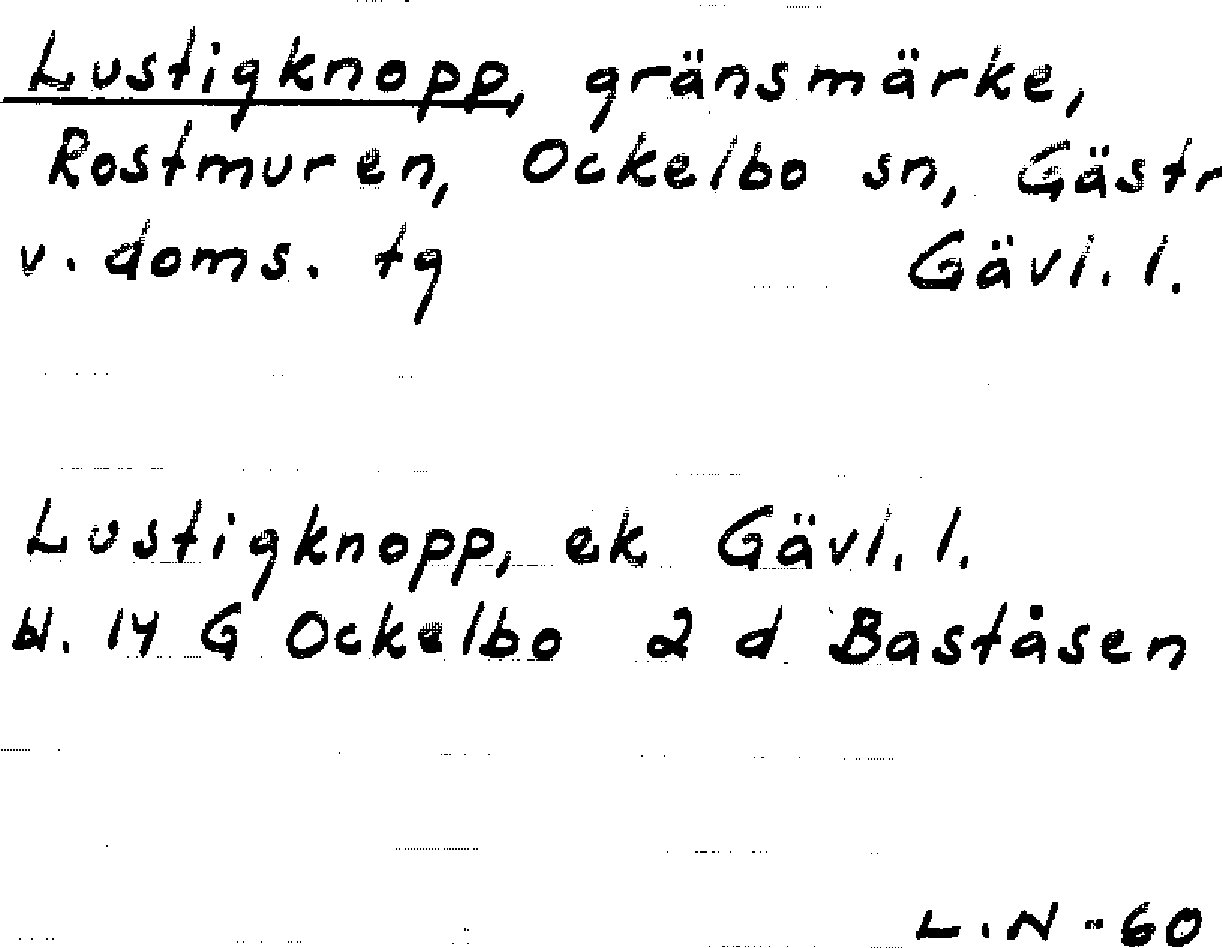 Lustigknopp, gränsmärke,
Rostmuren, Ockelbo sn, Gästr
v. doms. tg Gävl. l.
Lustigknopp, ek Gävl. l.
bl. 14 G Ockelbo 2 d Baståsen
L.N-60